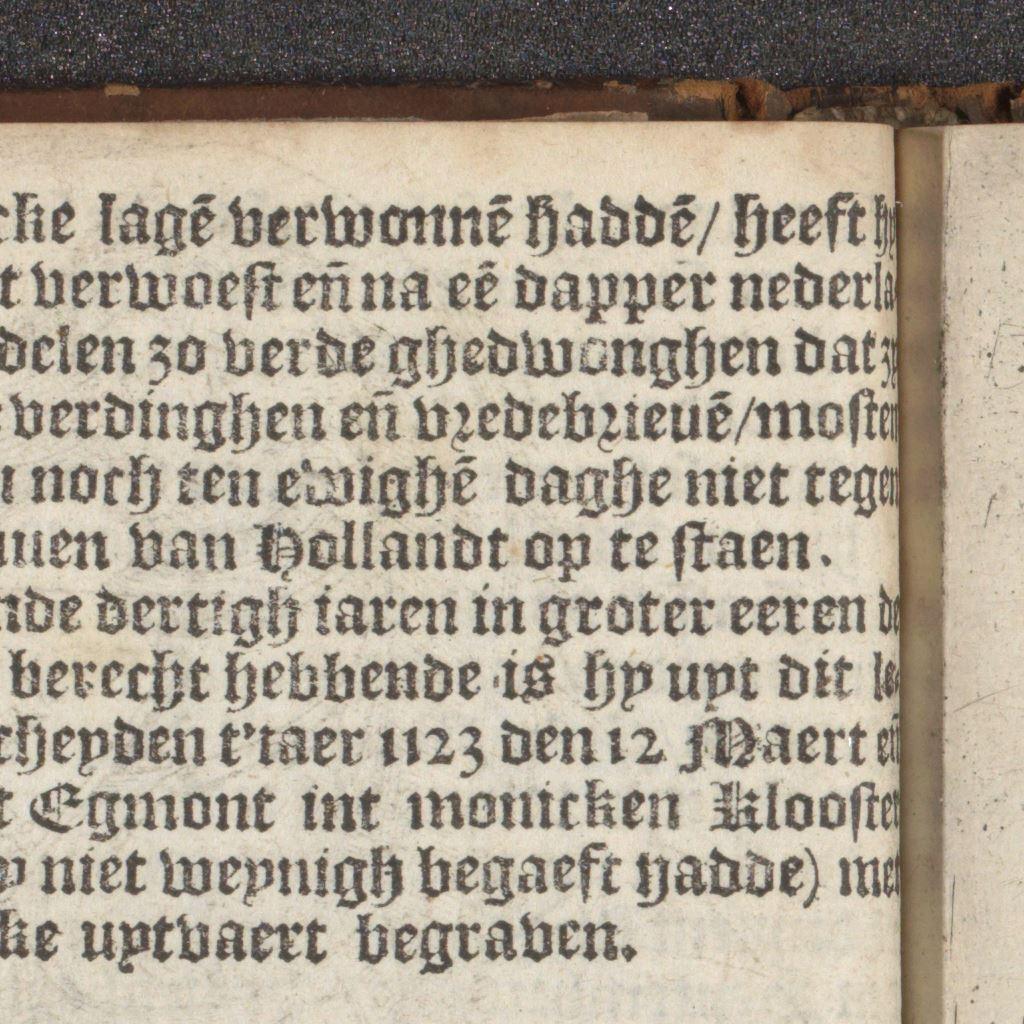 cke lagē verwonnē haddē/ heeft hy
t verwoest eñ na eē dapper nederla-
delen zo verde ghedwonghen dat zy
verdinghen eñ vredebrieuē/mosten
noch ten ewighē daghe niet tegen
uuen van Hollandt op te staen.
nde dertigh iaren in groter eeren de
berecht hebbende is hy uyt dit le-
cheyden t'iaer 1123 den 12 Maert eñ
t Egmont int monicken Klooster
y niet weynigh begaeft hadde) met
ke uytvaert begraven.